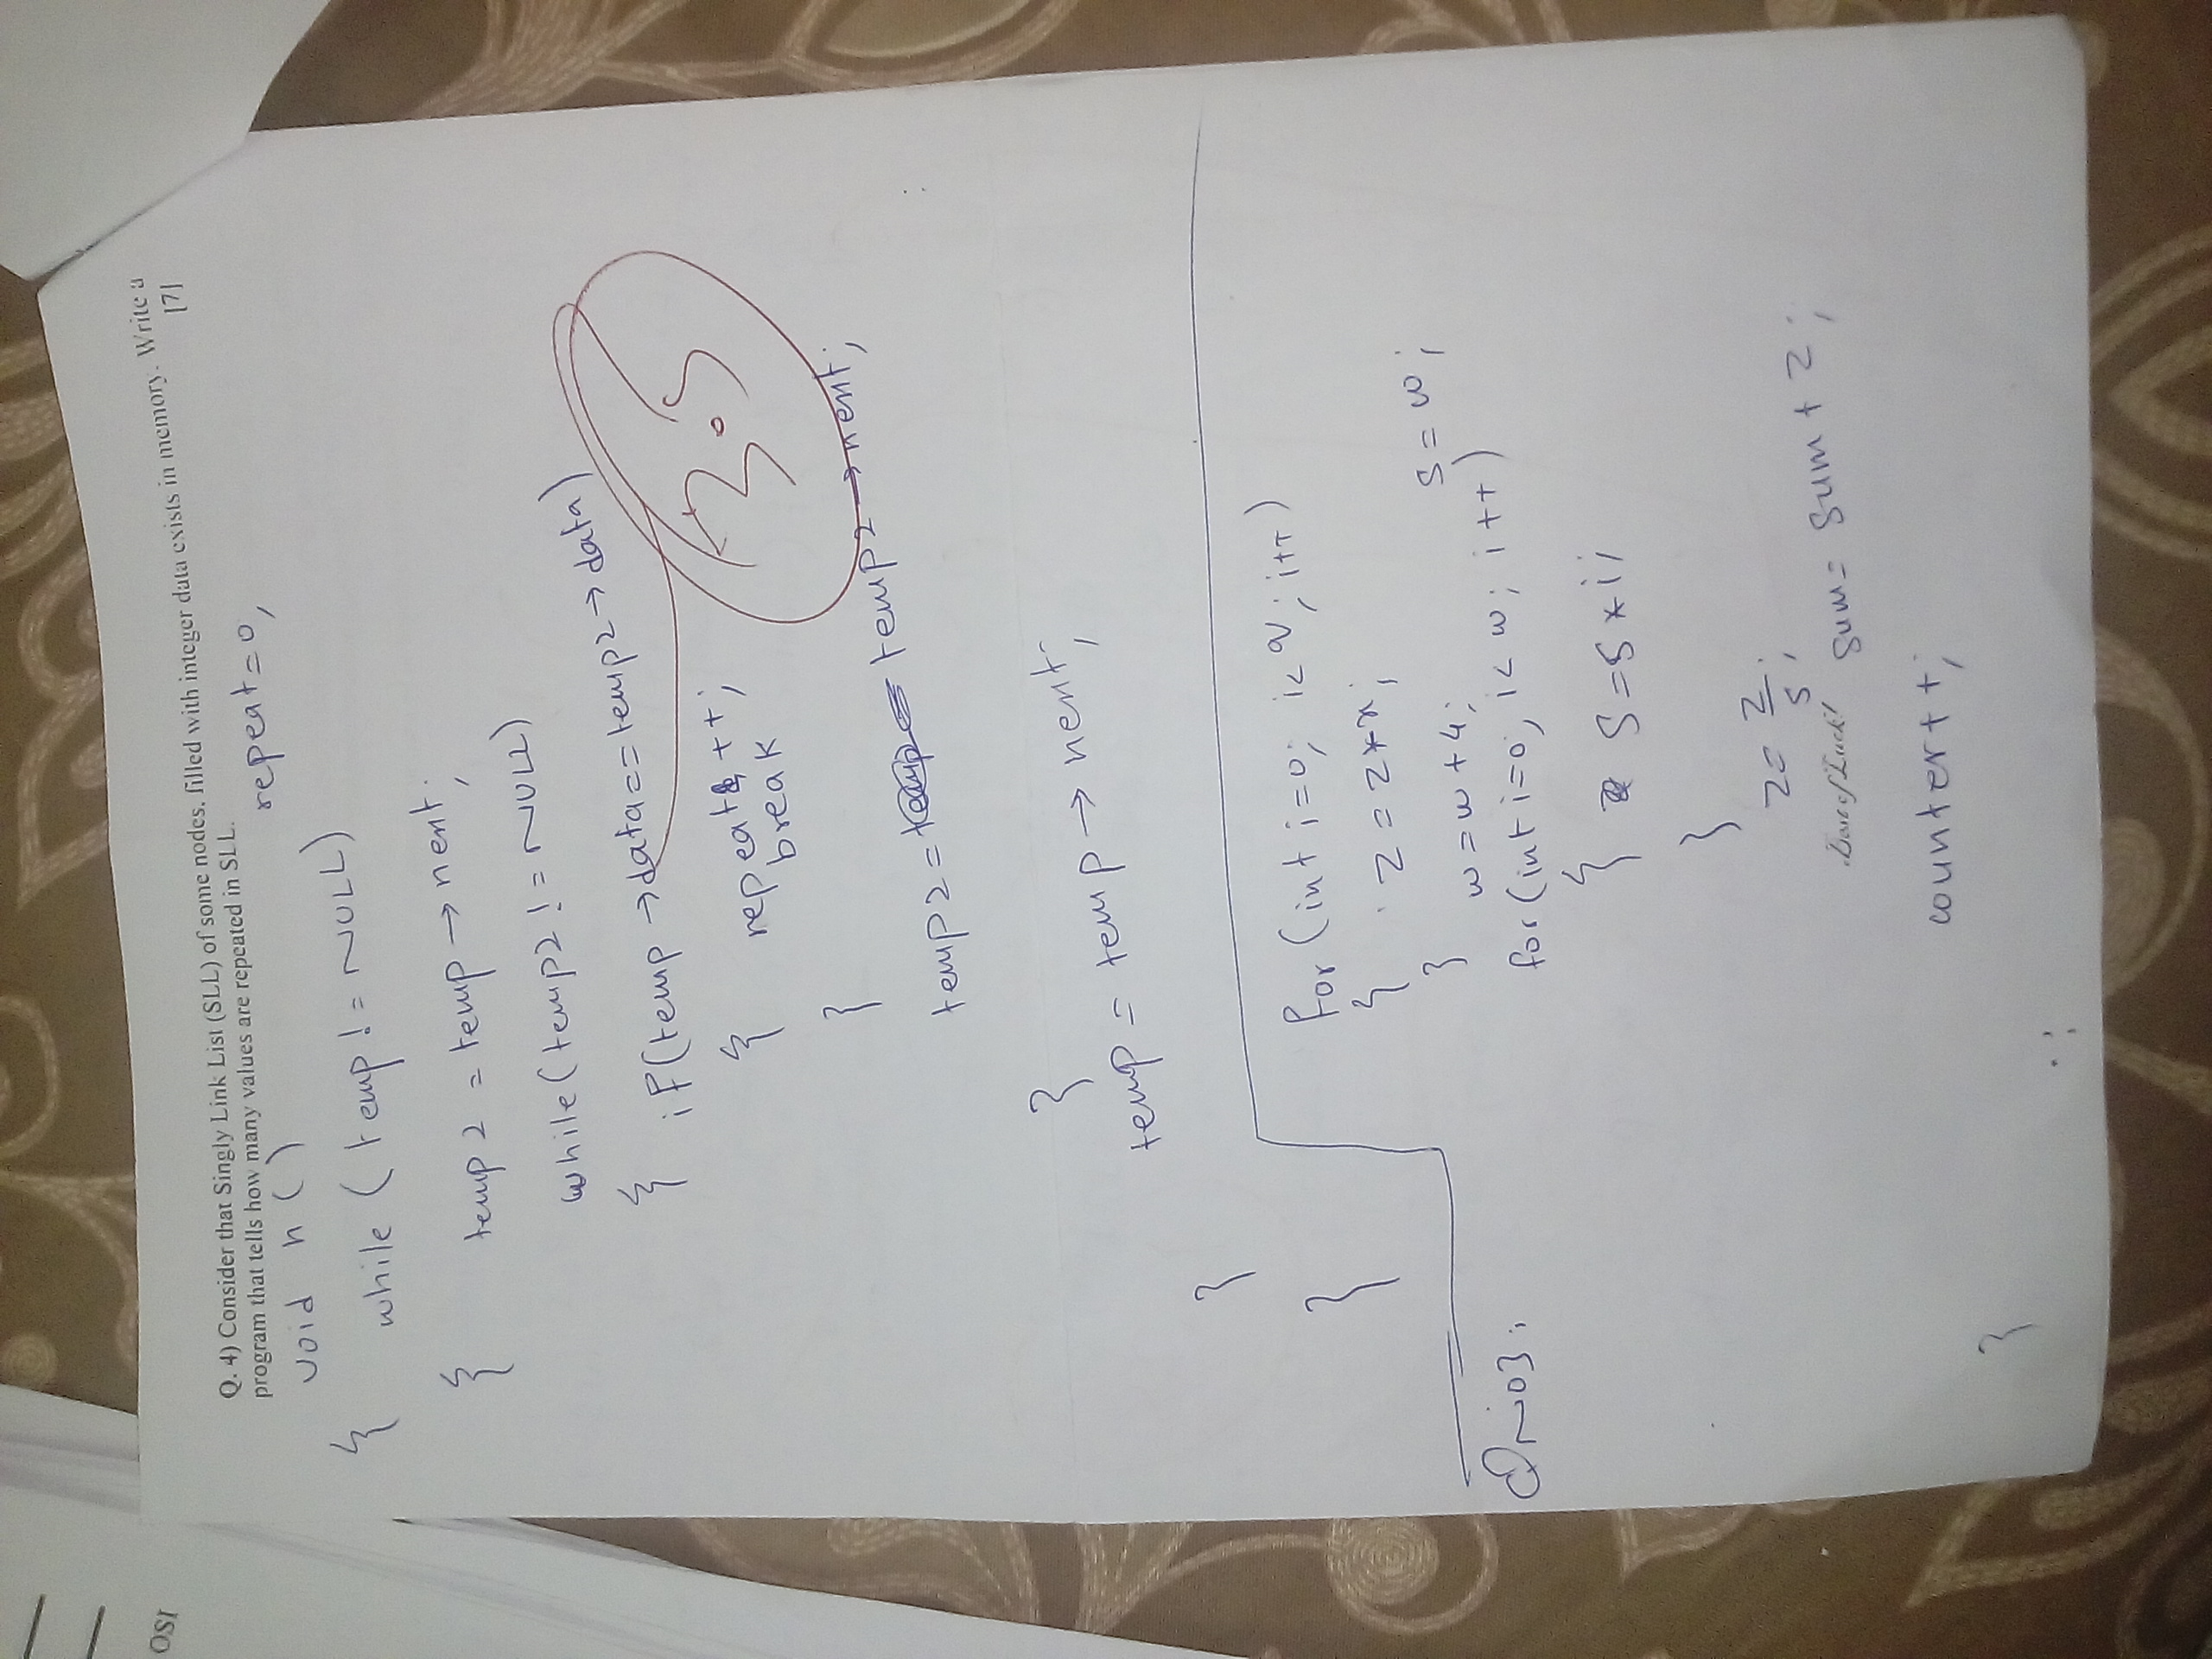 OSI
Q. 4) Consider that Singly Link List (SLL) of some nodes, filled with integer data exists in memory. Write a
program that tells how many values are repeated in SLL. [7]
void n ( ) repeat=0,
{ while ( temp != NULL)
{ temp 2 = temp → nent;
while (temp2 != NULL)
{ if(temp →data==temp2→data)
{ repeat ++;
break
3.5
}
temp2 = temp2→nent;
}
temp = temp → nent;
}
}
for (int i=0; i< ; i++)
{ z = z*x;
}
w=w+4; s = w;
QNo3:
for (int i=0; i< w; i++)
{ s=s*i;
}
z= z/s;
Best of Luck! sum= sum + z;
counter++;
}